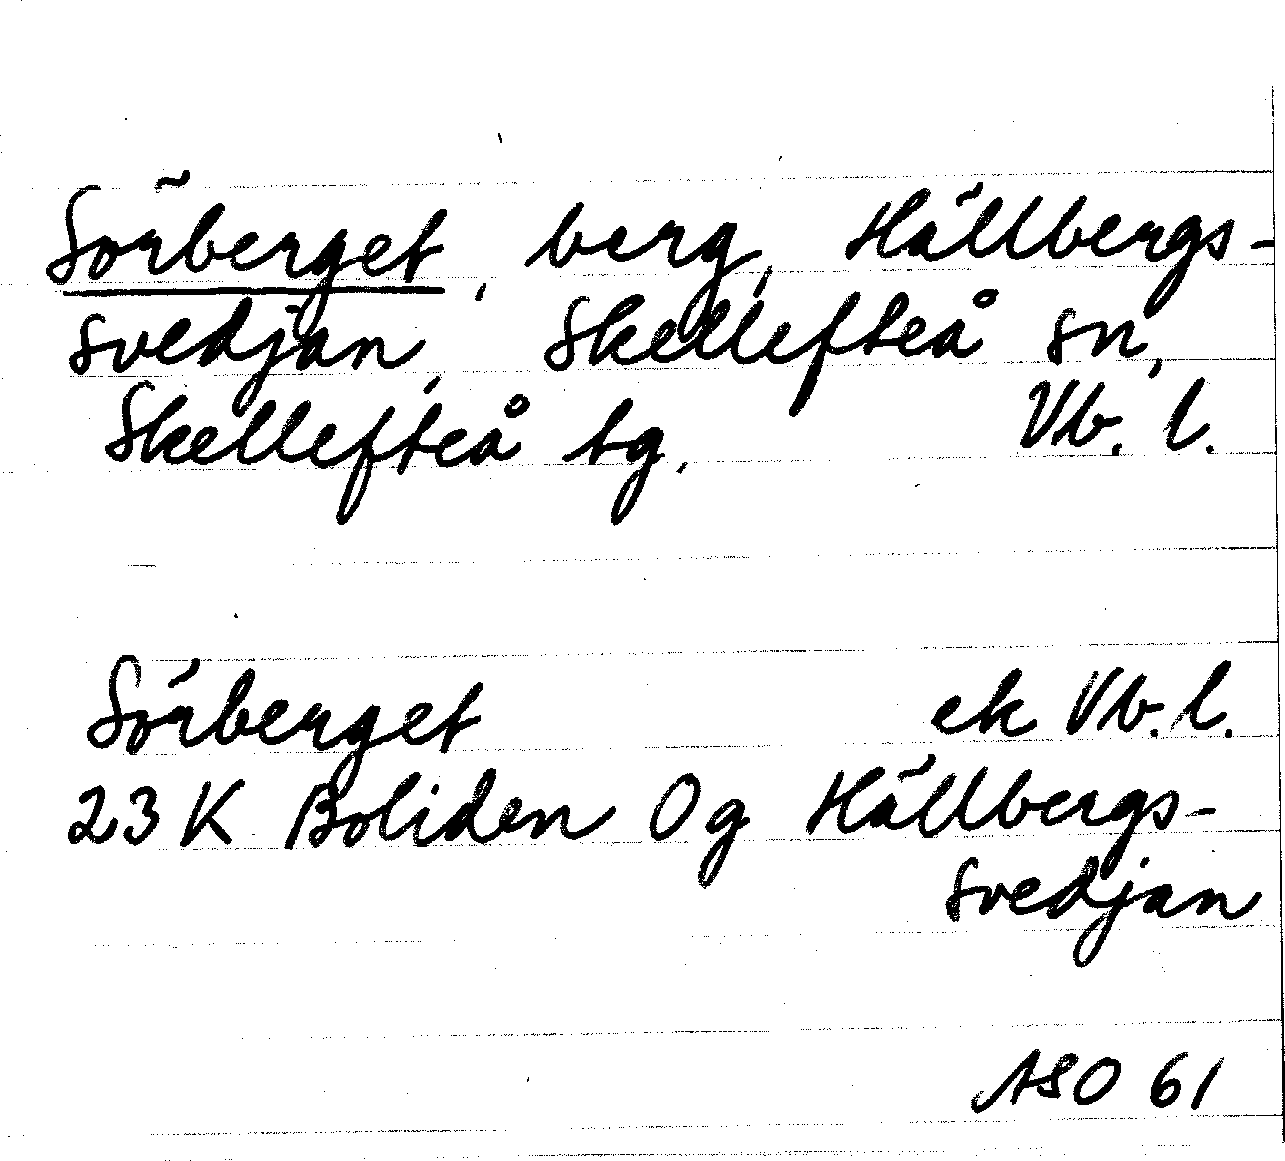 Sörberget, berg, Hällbergs-
svedjan, Skellefteå sn,
Skellefteå tg. Vb. l.
Sörberget ek Vb. l.
23 K Boliden 0g Hällbergs-
svedjan
ASO 61